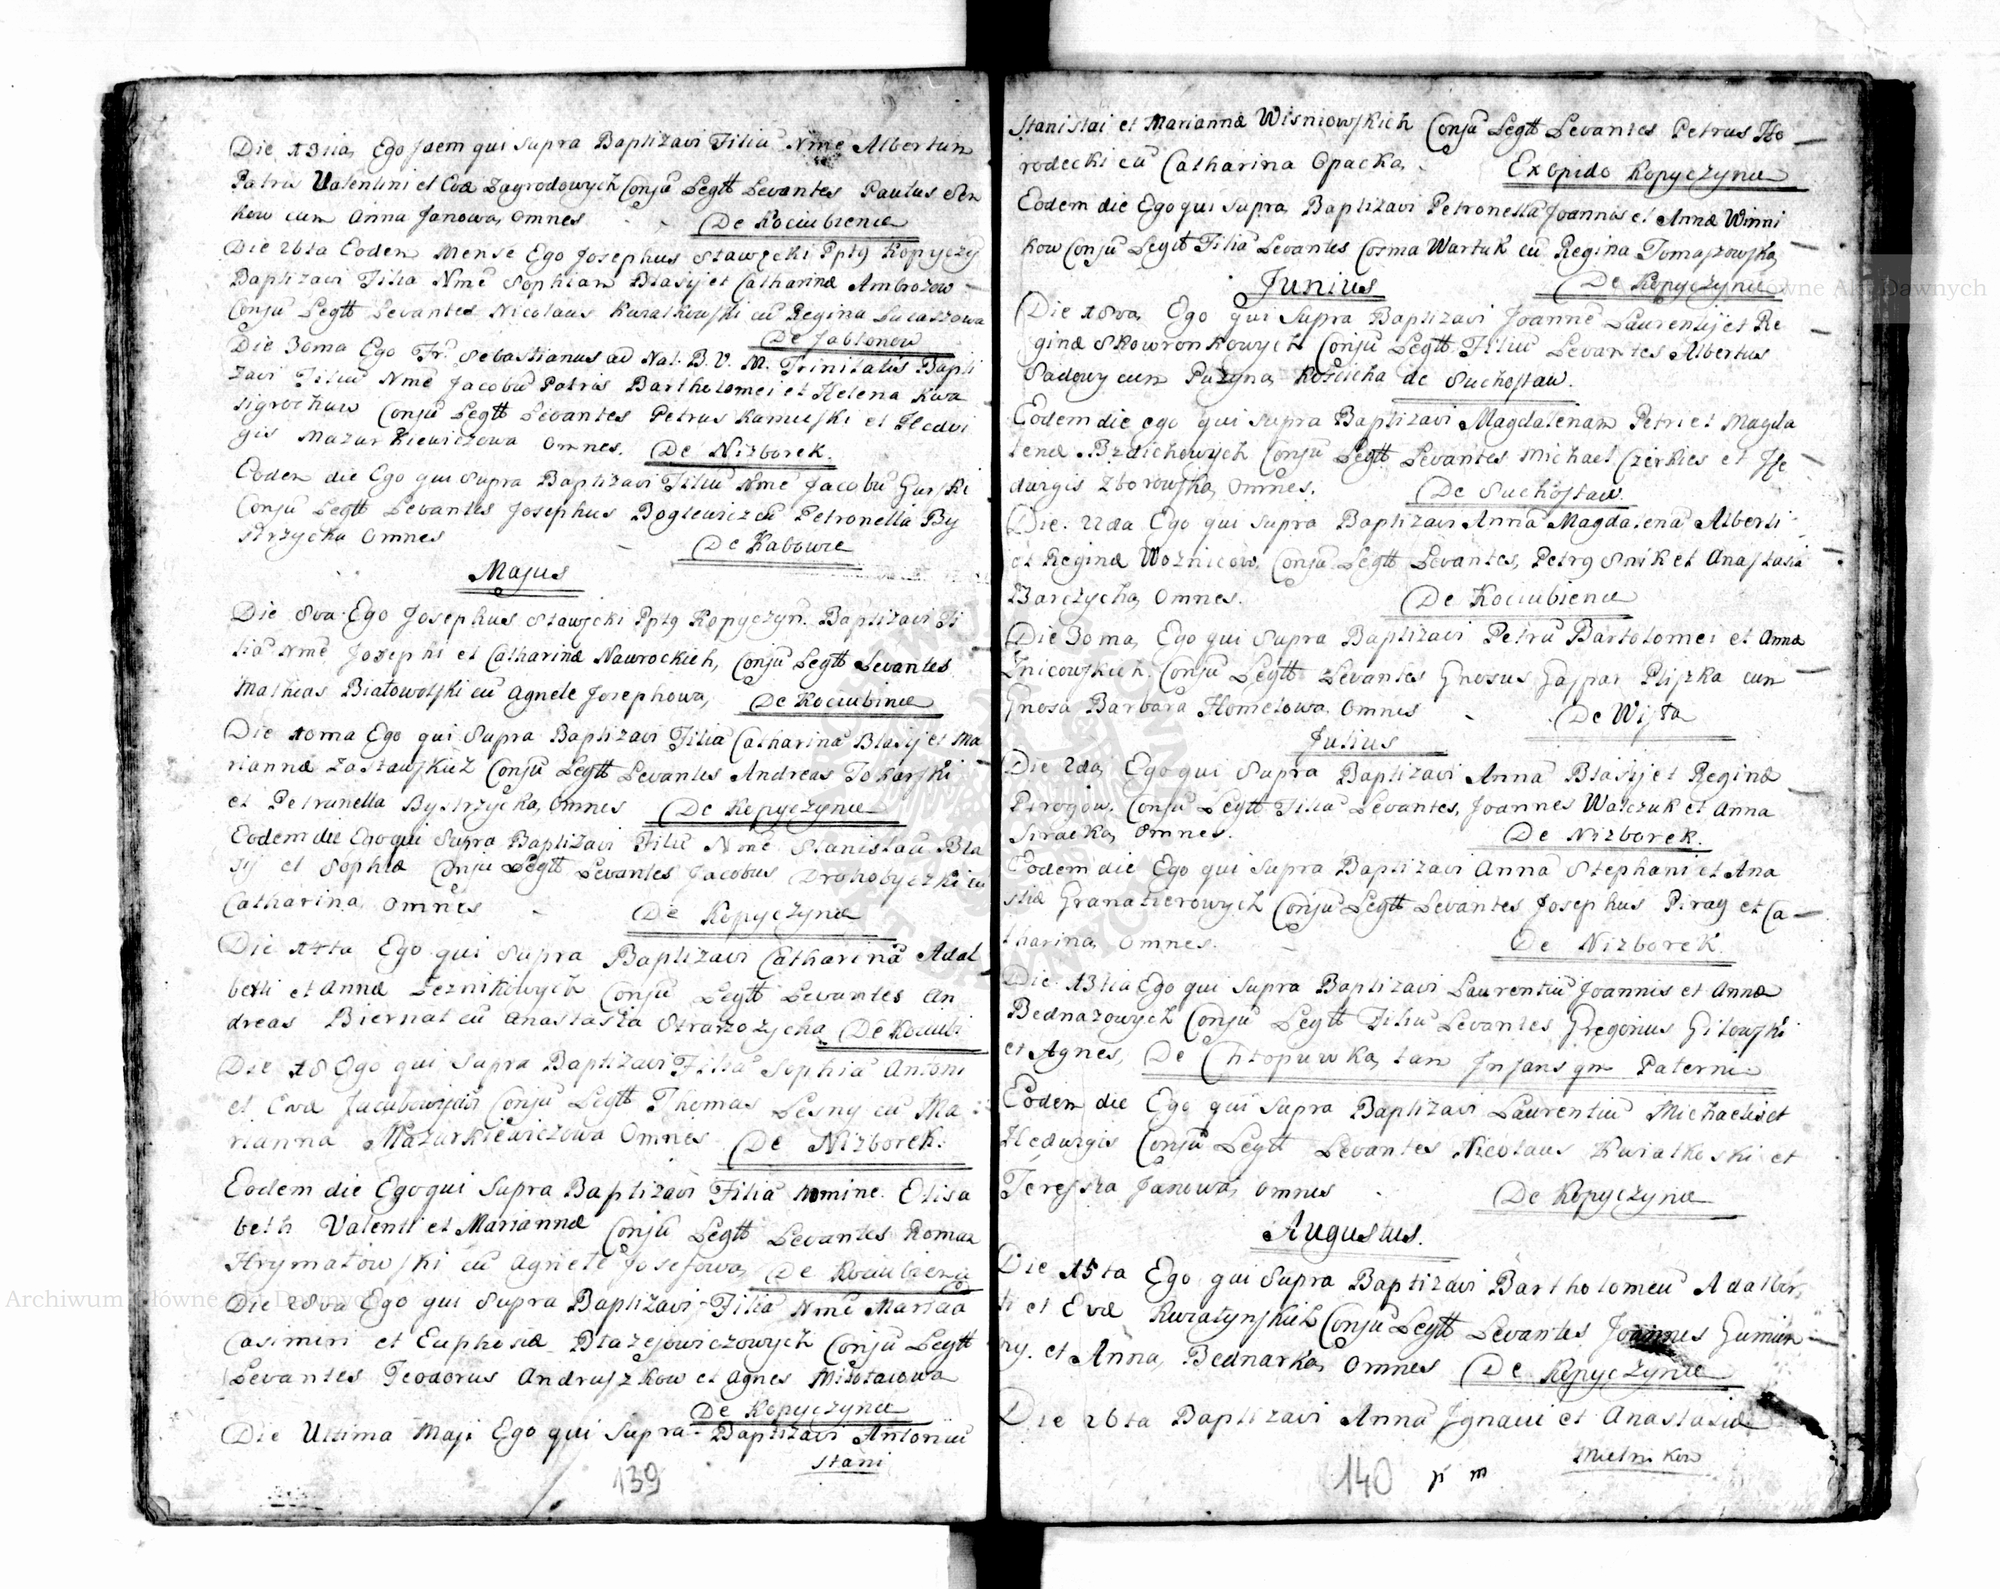 Die 13tia Ego jdem qui supra Baptizavi Filiũ Nmẽ Albertum
Patris Valentini et Evæ Zagrodowych Conjũ Legtt Levantes Paulus Sen
kow cum Anna Janowa, Omnes De Kociubience
Die 26ta Eoden Mense Ego Josephus Stawscki Pptg Kopyczÿ
Baptizavi Filia Nmẽ Sophiam Blasij et Catharinæ Ambrozow
Conjũ Legtt Levantes Nicolaus Kwiatkowski cũ Regina Lucaszowa
De Jabłonow
Die 30ma Ego Fr. Sebastianus ad Nat. B. V. M. Trinitatis Bapti
zavi Filiũ Nmẽ Jacobũ Patris Bartholomei et Helena Kwa
sigrochuw Conjũ Legtt Levantes Petrus Kamuski et Hedvi
gis Mazurkiewiczowa Omnes. De Nizborek.
Eoden die Ego qui Supra Baptizavi Filiũ Nmẽ Jacobũ Gurski
Conjũ Legtt Levantes Josephus Boglewicz cũ Petronella By
strzycka Omnes De Kabowce
Majus
Die 8va Ego Josephus Stawscki Pptg Kopyczyn. Baptizavi Fi
liã Nmẽ Josephi et Catharinæ Nawrockich, Conjũ Legtt Levantes
Mathias Białowolski cũ Agnete Josephowa, De Kociubince
Die 10ma Ego qui Supra Baptizavi Filiã Catharinã Blasij et Ma
riannæ Zastawskich Conjũ Legtt Levantes Andreas Tokarski
et Petrunella Bystrzycka, Omnes De Kopyczynce
Eodem die Ego qui Supra Baptizavi Filiũ Nmẽ Stanislaũ Bla
sij et Sophiæ Conju Legtt Levantes Jacobus Drohobyczki cũ
Catharina, Omnes De Kopyczynce
Die 14ta Ego qui Supra Baptizavi Catharinã Adal
berti et Annæ Leznikowych Conjũ Legtt Levantes An
dreas Biernat cũ Anastasia Strazozycha De Kociubi
Die 18 Ego qui Supra Baptizavi Filiã Sophiã Antoni
et Evæ Jacubowskich Conjũ Legtt Thomas Lesny cũ Ma
rianna Mazurkiewiczowa Omnes De Nizborek.
Eodem die Ego qui Supra Baptizavi Filiã Nomine Elisa
beth Valenti et Mariannæ Conjũ Legtt Levantes Roman
Hrymałowski cũ Agnete Josefowa, De Kociubience
Die 28va Ego qui Supra Baptizavi Filiã Nmẽ Mariãa
Casimiri et Euphosiæ Błazejowiczowych Conjũ Legtt
Levantes Teodorus Andruszkow et Agnes Mikołaiowa
De Kopyczynce
Die Ultima Maji Ego qui Supra Baptizavi Antoniũ
Stani
139
Stanislai et Mariannæ Wisniowskich Conjũ Legtt Levantes Petrus Ho
rodecki cũ Catharina Opacka, Ex Opido Kopyczynce
Eodem die Ego qui supra Baptizavi Petronellã Joannis et Annæ Winni
kow Conjũ Legtt Filiã Levantes Cosma Wartuk cũ Regina Tomaszowska,
Junius De Kopyczynce
Die 18va Ego qui Supra Baptizavi Joannẽ Laurentij et Re
ginæ Skowronkowych Conjũ Legtt Filiũ Levantes Albertus
Sadowy cum Puzyna Kościcha de Suchostaw.
Eodem die ego qui Supra Baptizavi Magdalenam Petri et Magda
lenæ Bzdichowych Conjũ Legtt Levantes Michael Czerkies et He
dwigis Zborowska, Omnes. De Suchostaw.
Die 22da Ego qui Supra Baptizavi Annã Magdalenã Alberti
et Reginæ Woznicow, Conjũ Legtt Levantes, Petrg Snik et Anastasia
Barczycha, Omnes. De Kociubience
Die 30ma Ego qui Supra Baptizavi Petrũ Bartolomei et Annæ
Znicowskich Conjũ Legtt Levantes Gnosus Gaspar Pliszka cum
Gnosa Barbara Hometowa Omnes De Wista
Julius
Die 2da Ego qui Supra Baptizavi Annã Blasij et Reginæ
Pirogow. Conjũ Legtt Filiã Levantes, Joannes Walczuk et Anna
Siracka, Omnes. De Nizborek.
Eodem die Ego qui Supra Baptizavi Annã Stephani et Ana
stiæ Granatierowych Conjũ Legtt Levantes Josephus Pirag et Ca
tharina, Omnes. De Nizborek.
Die 13tia Ego qui Supra Baptizavi Laurentiũ Joannis et Annæ
Bednazowych Conjũ Legtt Filiũ Levantes Gregorius Gitowski
et Agnes, De Chłopuwka, tam Infans qm Paterni
Eodem die Ego qui Supra Baptizavi Laurentiũ Michaelis et
Hedwigis Conjũ Legtt Levantes Nicolaus Kwiatkoski et
Tereska Janowa, Omnes De Kopyczynce
Augustus.
Die 15ta Ego qui Supra Baptizavi Bartholomeũ Adalber
ti et Evæ Kwiatynskich Conjũ Legtt Levantes Joannes Gumien
ny. et Anna Bednarka, Omnes De Kopyczynce
Die 26ta Baptizavi Annã Ignacii et Anastasiæ
Mielnikow
140 p m
Archiwum Główne Akt Dawnych